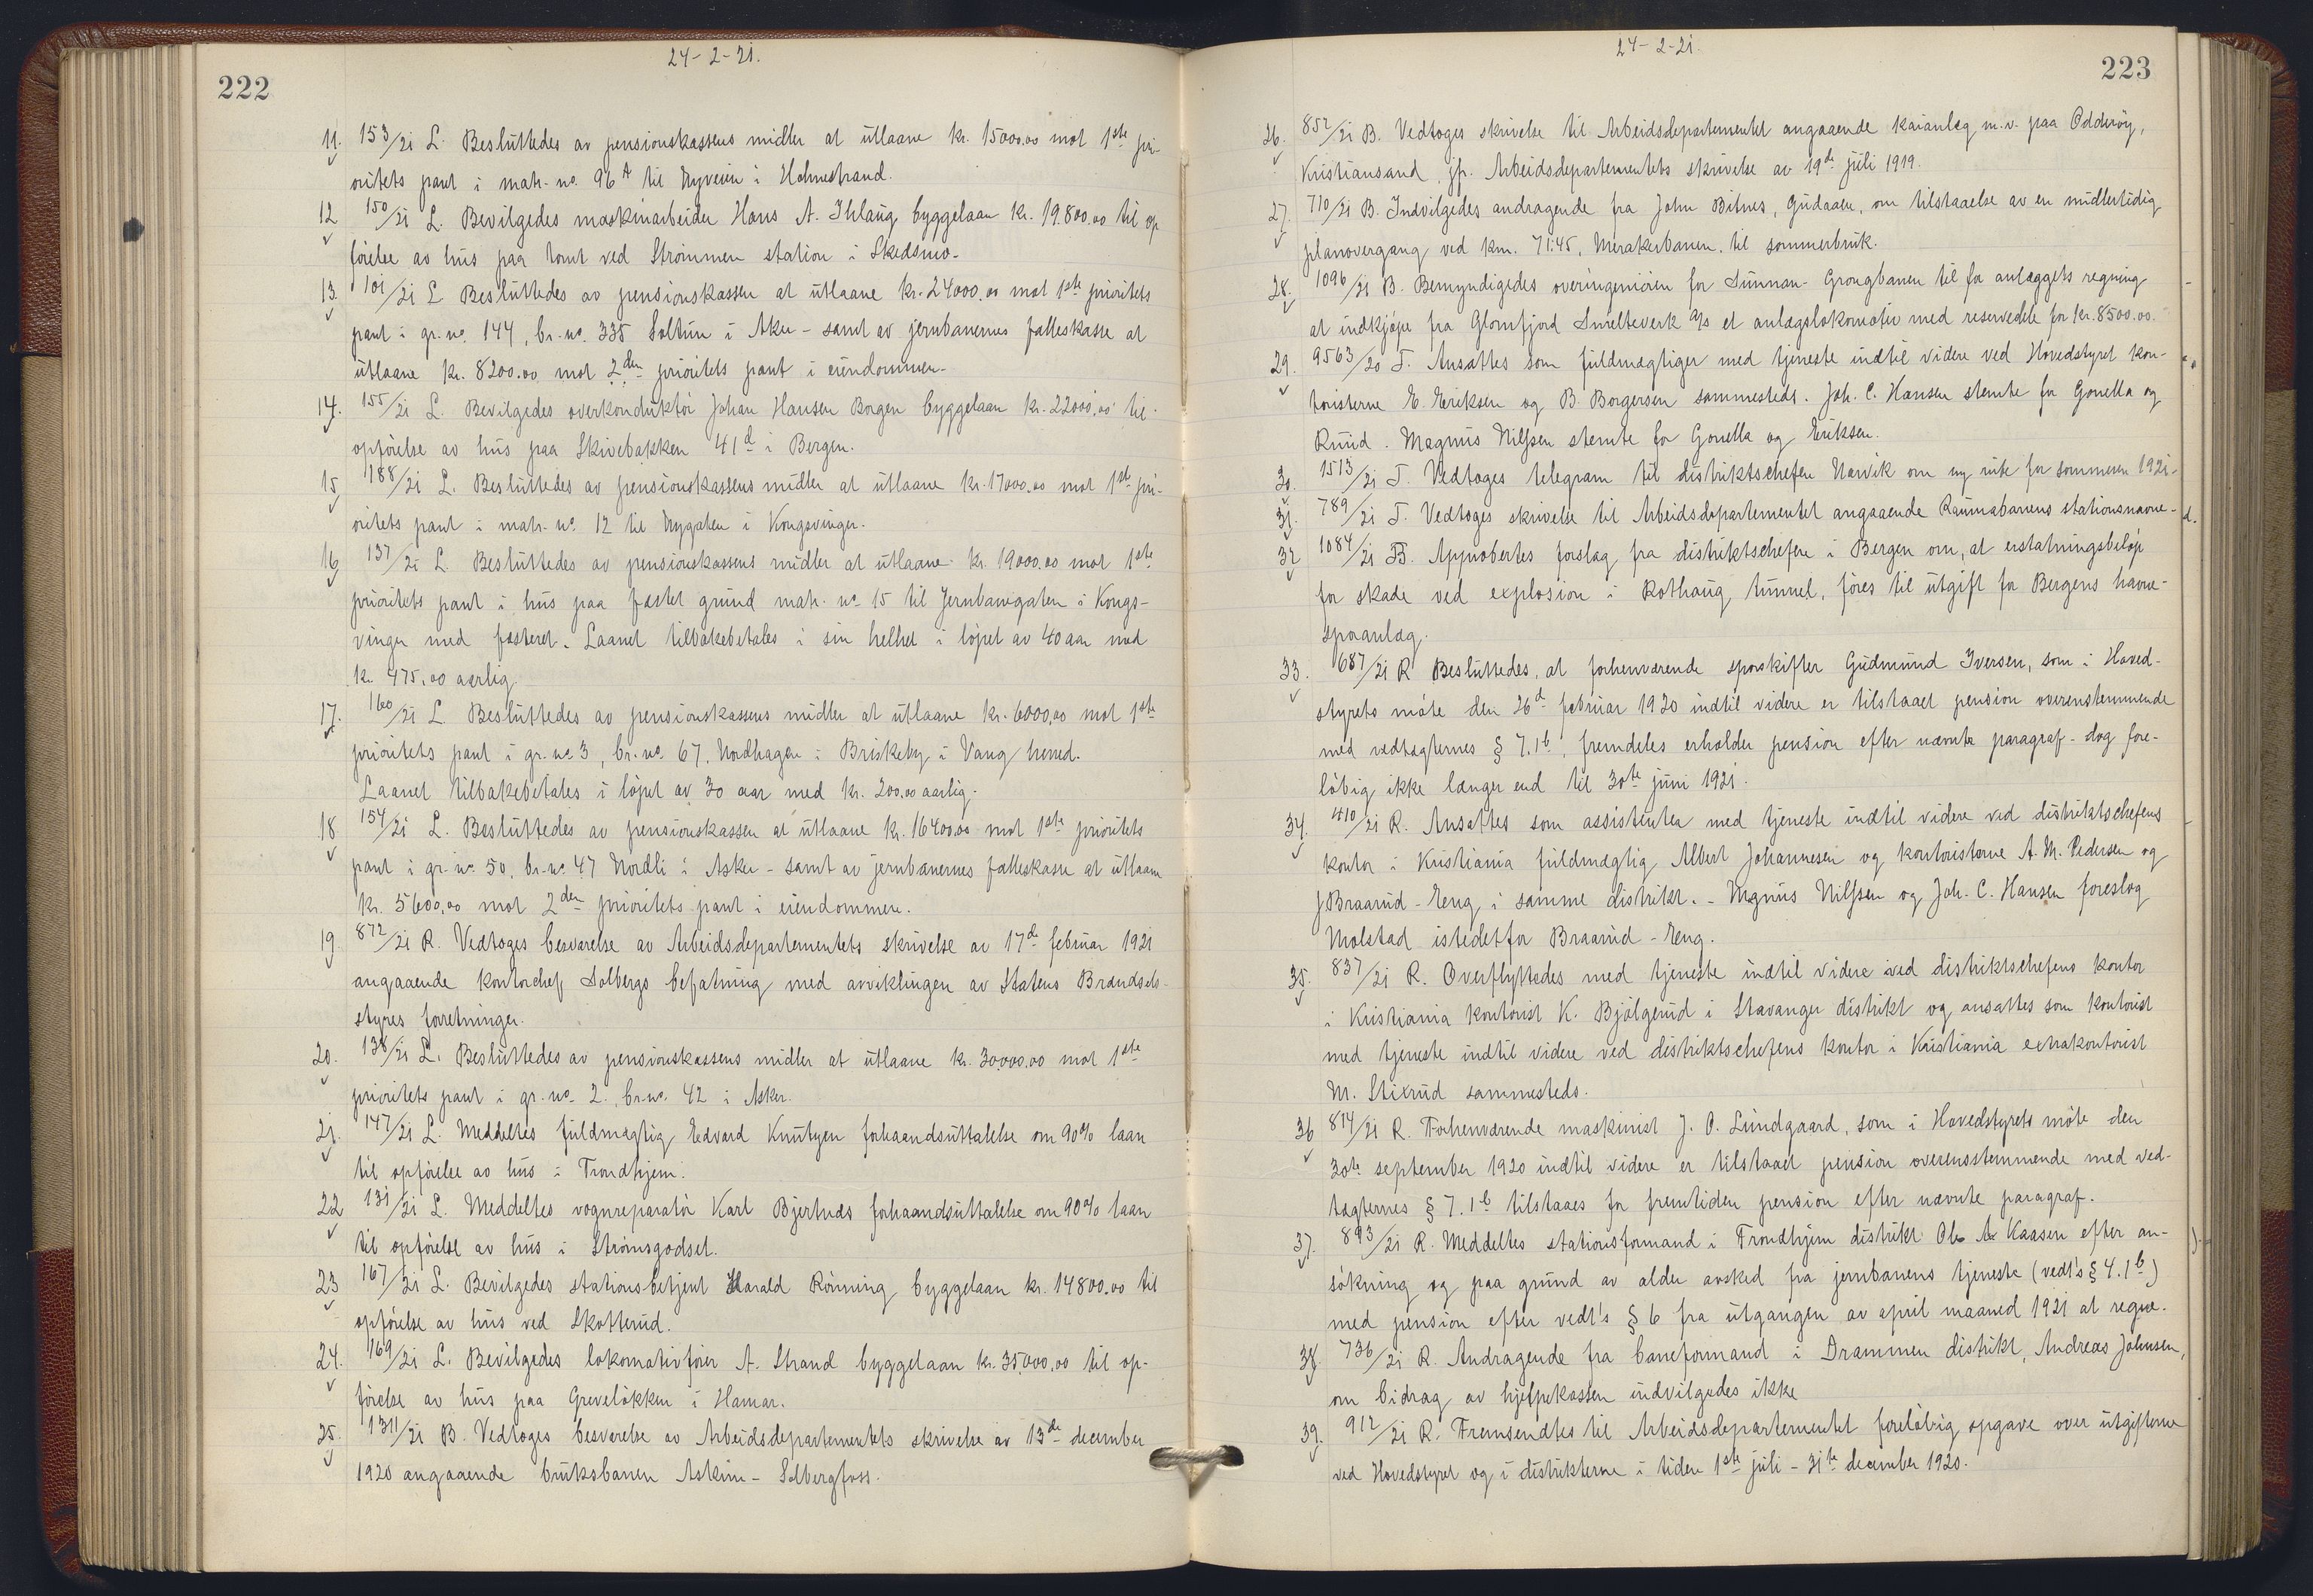 222
24-2-21.
11. 153/21 L. Besluttedes av pensionskassens midler at utlaane kr. 15000.00 mot 1ste pri-
oritets pant i matr. no. 96A til Nyveien i Holmestrand.
12 150/21 L. Bevilgedes maskinarbeider Hans A. Ihlaug byggelaan kr. 19.800.00 til op
förelse av hus paa tomt ved Strömmen station i Skedsmo.
13 101/21 L Besluttedes av pensionskassen at utlaane kr. 24000.00 mot 1ste prioritets
pant i gr. no. 144, br. no. 335 Soltun i Aker - samt av jernbanernes fælleskasse at
utlaane kr. 8200.00 mot 2den prioritets pant i eiendommen.
14. 155/21 L. Bevilgedes overkonduktör Johan Hansen Borgen byggelaan kr. 22000,00 til
opförelse av hus paa Skivebakken 41d i Bergen.
15 188/21 L. Besluttedes av pensionskassens midler at utlaane kr. 17000.00 mot 1ste pri-
oritets pant i matr. no. 12 til Nygaten i Kongsvinger.
16 137/21 L. Besluttedes av pensionskassens midler at utlaane kr. 19000.00 mot 1ste
prioritets pant i hus paa fæstet grund matr. no 15 til Jernbanegaten i Kongs-
vinger med fæsteret. Laanet tilbakebetales i sin helhet i löpet av 40 aar med
kr. 475.00 aarlig.
17. 160/21 L Besluttedes av pensionskassens midler at utlaane kr. 6000,00 mot 1ste
prioritets pant i gr. no. 3, br. no. 67, Nordhagen i Briskeby i Vang herred.
Laanet tilbakebetales i löpet av 30 aar med kr. 200.00 aarlig.
18 154/21 L. Besluttedes av pensionskassen at utlaane kr. 16400.00 mot 1ste prioritets
pant i gr. no. 50, br. no. 47 Nordli i Asker - samt av jernbanernes fælleskasse at utlaane
kr. 5600,00 mot 2den prioritets pant i eiendommen.
19 872/21 R. Vedtoges besvarelse av Arbeidsdepartementets skrivelse av 17de februar 1921
angaaende kontorchef Solbergs befatning med avviklingen av Statens Brændsels-
styres forretninger.
20. 138/21 L. Besluttedes av pensionskassens midler at utlaane kr. 30,000.00 mot 1ste
prioritets pant i gr. no. 2, br. no. 42 i Asker.
21. 147/21 L. Meddeltes fuldmægtig Edvard Knutzen forhaandsuttalelse om 90% laan
til opförelse av hus i Trondhjem.
22 131/21 L. Meddeltes vognreparatör Karl Bjertnæs forhaandsuttalelse om 90% laan
til opförelse av hus i Strömsgodset.
23 167/21 L. Bevilgedes stationsbetjent Harald Rönning byggelaan kr. 14800.00 til
opförelse av hus ved Skotterud.
24. 169/21 L. Bevilgedes lokomotivförer A. Strand byggelaan kr. 35,000,00 til op-
förelse av hus paa Grevelökken i Hamar.
25. 1311/21 B. Vedtoges besvarelse av Arbeidsdepartementets skrivelse av 13de december
1920 angaaende bruksbanen Askim - Solbergfoss.
223
24-2-21.
26. 852/21 B. Vedtoges skrivelse til Arbeidsdepartementet angaaende kaianlæg m.v. paa Odderöy,
Kristiansand, jfr. Arbeidsdepartementets skrivelse av 19de juli 1919.
27. 710/21 B. Indvilgedes andragende fra John Bitnes, Gudaaen, om tilstaaelse av en midlertidig
planovergang ved km. 71.45, Merakerbanen, til sommerbruk.
28. 1096/21 B. Bemyndigedes overingeniören for Sunnan-Grongbanen til for anlæggets regning
at indkjöpe fra Glomfjord Smelteverk A/s et anlægslokomotiv med reservedele for kr. 8500.00.
29. 9563/20 T. Ansattes som fuldmægtiger med tjeneste indtil videre ved Hovedstyret kon-
toristerne E. Eriksen og B. Borgersen sammesteds. Joh. C. Hansen stemte for Gonella og
Ruud. Magnus Nilssen stemte for Gonella og Eriksen.
30. 1513/21 T. Vedtoges telegram til distriktschefen Narvik om ny rute for sommeren 1921.
31. 789/21 T. Vedtoges skrivelse til Arbeidsdepartementet angaaende Raumabanens stationsnavne.
32 1084/21 B. Approbertes forslag fra distriktschefen i Bergen om, at erstatningsbelöp
for skade ved explosion i Rothaug tunnel, föres til utgift for Bergens havne-
sporanlæg.
33. 687/21 R Besluttedes, at forhenværende sporskifter Gudmund Iversen, som i Hoved-
styrets möte den 26de februar 1920 indtil videre er tilstaaet pension overensstemmende
med vedtægternes § 7.1b, fremdeles erholder pension efter nævnte paragraf - dog fore-
löbig ikke længer end til 30te juni 1921.
34. 410/21 R. Ansattes som assistenter med tjeneste indtil videre ved distriktschefens
kontor i Kristiania fuldmægtig Albert Johannesen og kontoristerne A. M. Pedersen og
J. Braarud-Eng i samme distrikt. - Magnus Nilssen og Joh. C. Hansen foreslog
Molstad istedetfor Braarud-Eng.
35. 837/21 R. Overflyttedes med tjeneste indtil videre ved distriktschefens kontor
i Kristiania kontorist K. Bjölgerud i Stavanger distrikt og ansattes som kontorist
med tjeneste indtil videre ved distriktschefens kontor i Kristiania extrakontorist
M. Stixrud sammesteds.
36 814/21 R. Forhenværende maskinist J. O. Lundgaard, som i Hovedstyrets möte den
30te september 1920 indtil videre er tilstaaet pension overensstemmende med ved-
tægternes § 7.1b tilstaaes for fremtiden pension efter nævnte paragraf.
37. 893/21 R. Meddeltes stationsformand i Trondhjem distrikt Ole A. Kaasen efter an-
sökning og paa grund av alder avsked fra jernbanens tjeneste (vedt's § 4.1b)
med pension efter vedt's § 6 fra utgangen av april maaned 1921 at regne.
38 736/21 R. Andragende fra baneformand i Drammen distrikt, Andreas Johnsen,
om bidrag av hjelpekassen indvilgedes ikke
39. 912/21 R. Fremsendtes til Arbeidsdepartementet forelöbig opgave over utgifterne
ved Hovedstyret og i distrikterne i tiden 1ste juli - 31te december 1920.